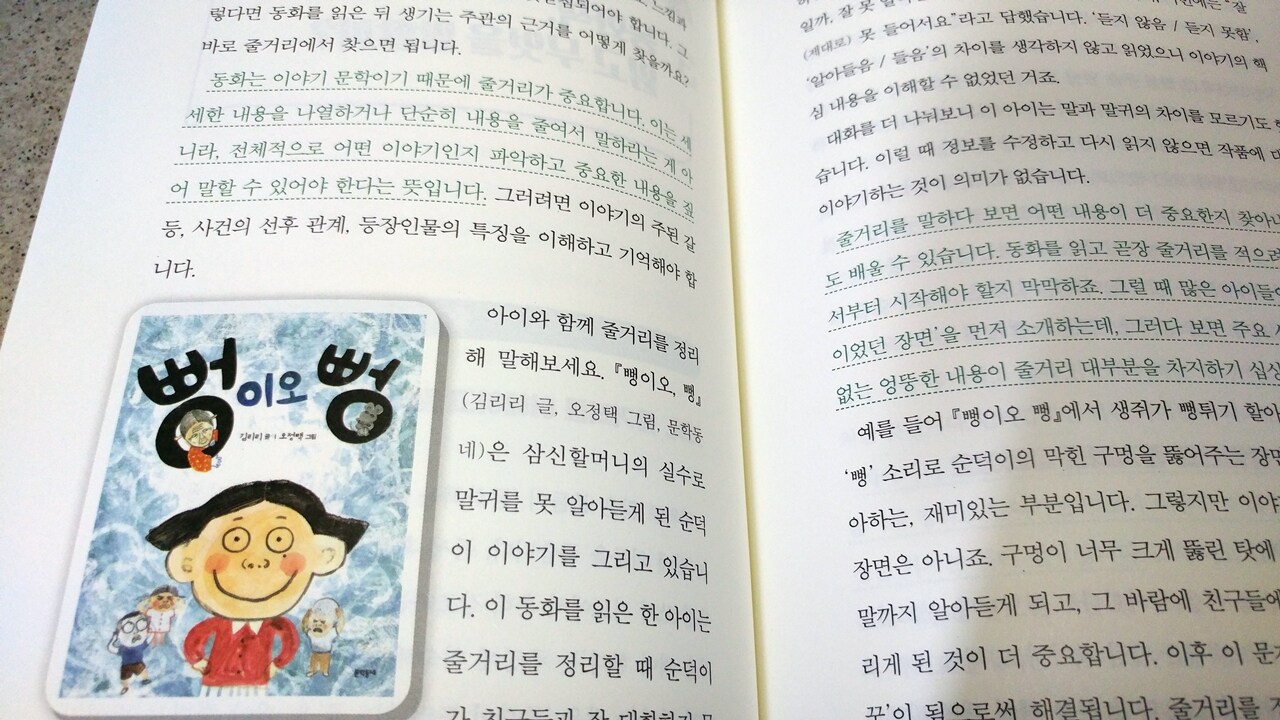 렇다면 동화를 읽은 뒤 생기는 주관의 근거를 어떻게 찾을까요?
바로 줄거리에서 찾으면 됩니다.
동화는 이야기 문학이기 때문에 줄거리가 중요합니다. 이는 세
세한 내용을 나열하거나 단순히 내용을 줄여서 말하라는 게 아
니라, 전체적으로 어떤 이야기인지 파악하고 중요한 내용을 짚
어 말할 수 있어야 한다는 뜻입니다. 그러려면 이야기의 주된 갈
등, 사건의 선후 관계, 등장인물의 특징을 이해하고 기억해야 합
니다.
뻥이오 뻥
김리리 글 | 오정택 그림
문학동네
아이와 함께 줄거리를 정리
해 말해보세요. 『뻥이오, 뻥』
(김리리 글, 오정택 그림, 문학동
네)은 삼신할머니의 실수로
말귀를 못 알아듣게 된 순덕
이 이야기를 그리고 있습니
다. 이 동화를 읽은 한 아이는
줄거리를 정리할 때 순덕이
가 친구들과 잘 대화하지 못
일까, 잘 못
(제대로) 못 들어서요”라고 답했습니다. ‘듣지 않음 / 듣지 못함’,
‘알아들음 / 들음’의 차이를 생각하지 않고 읽었으니 이야기의 핵
심 내용을 이해할 수 없었던 거죠.
대화를 더 나눠보니 이 아이는 말과 말귀의 차이를 모르기도
습니다. 이럴 때 정보를 수정하고 다시 읽지 않으면 작품에
이야기하는 것이 의미가 없습니다.
줄거리를 말하다 보면 어떤 내용이 더 중요한지
도 배울 수 있습니다. 동화를 읽고 곧장 줄거리를
서부터 시작해야 할지 막막하죠. 그럴 때 많은
이었던 장면’을 먼저 소개하는데, 그러다 보면 주요
없는 엉뚱한 내용이 줄거리 대부분을 차지하기
예를 들어 『뻥이오 뻥』에서 생쥐가 뻥튀기
‘뻥’ 소리로 순덕이의 막힌 구멍을 뚫어주는
아하는, 재미있는 부분입니다. 그렇지만
장면은 아니죠. 구멍이 너무 크게 뚫린 탓에
말까지 알아듣게 되고, 그 바람에
리게 된 것이 더 중요합니다. 이후 이
꾼’이 됨으로써 해결됩니다. 줄거리를